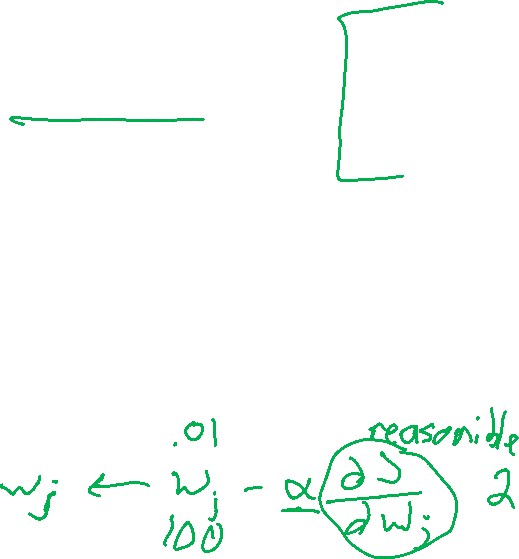 .01
reasonible
wj ← wj - α ∂J/∂wj 2
100